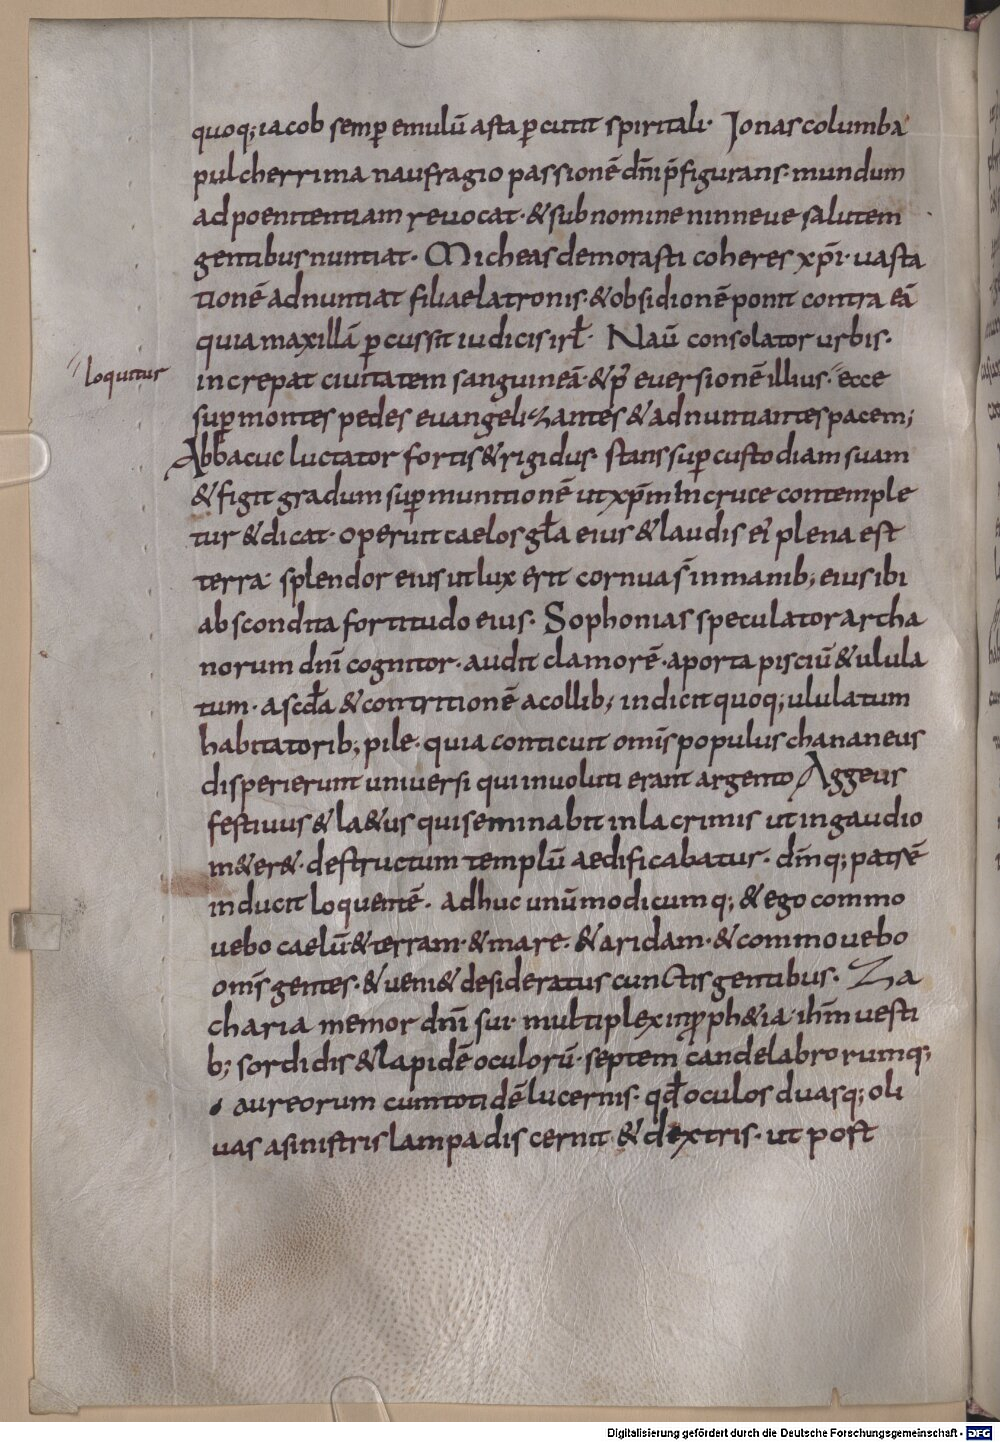 quoq; iacob semꝑ emulū asta ꝑcutit spiritali· Jonas columba
pulcherrima naufragio passionē dn̄i p̄figurans· mundum
ad poenitentiam reuocat· & sub nomine ninneue salutem
gentibus nuntiat· Micheas demorasti coheres xp̄i· uasta
tionē adnuntiat filiae latronis· & obsidionē ponit contra eā
quia maxillā ꝑcussit iudicis irł· Naū consolator urbis·
loquitur
increpat ciuitatem sanguineā· & p̄ euersionē illius· ecce
suꝑ montes pedes euangelizantes & adnuntiantes pacem;
Abbacuc luctator fortis & rigidus· stans suꝑ custodiam suam
& figit gradum suꝑ munitionē ut xp̄m in cruce contemple
tur & dicat· operuit caelos gła eius & laudis ei plena est
terra· splendor eius ut lux erit cornua s̄ in manib; eius ibi
abscondita fortitudo eius· Sophonias speculator archa
norum dn̄i cognitor· audit clamorē· a porta pisciū & ulula
tum· a scđa & contritionē a collib; indicit quoq; ululatum
habitatorib; pile· quia conticuit omīs populus chananeus
disperierunt uniuersi qui inuoluti erant argento Aggeus
festiuus & la&us qui seminabit in lacrimis ut in gaudio
m&er&· destructum templū aedificabatur· dīnq; patrē
inducit loquentē· adhuc unū modicumq; & ego commo
uebo caelū & terram· & mare· & aridam· & commouebo
omīs gentes· & ueni& desideratus cunctis gentibus· Za
charia memor dn̄i sui· multiplex in ꝓph&ia· ih̄m uesti
b; sordidis & lapidē oculorū· septem candelabrorumq;
aureorum cum totidē lucernis· qđ oculos duasq; oli
uas a sinistris lampadis cernit· & dextris· ut post
Digitalisierung gefördert durch die Deutsche Forschungsgemeinschaft - DFG